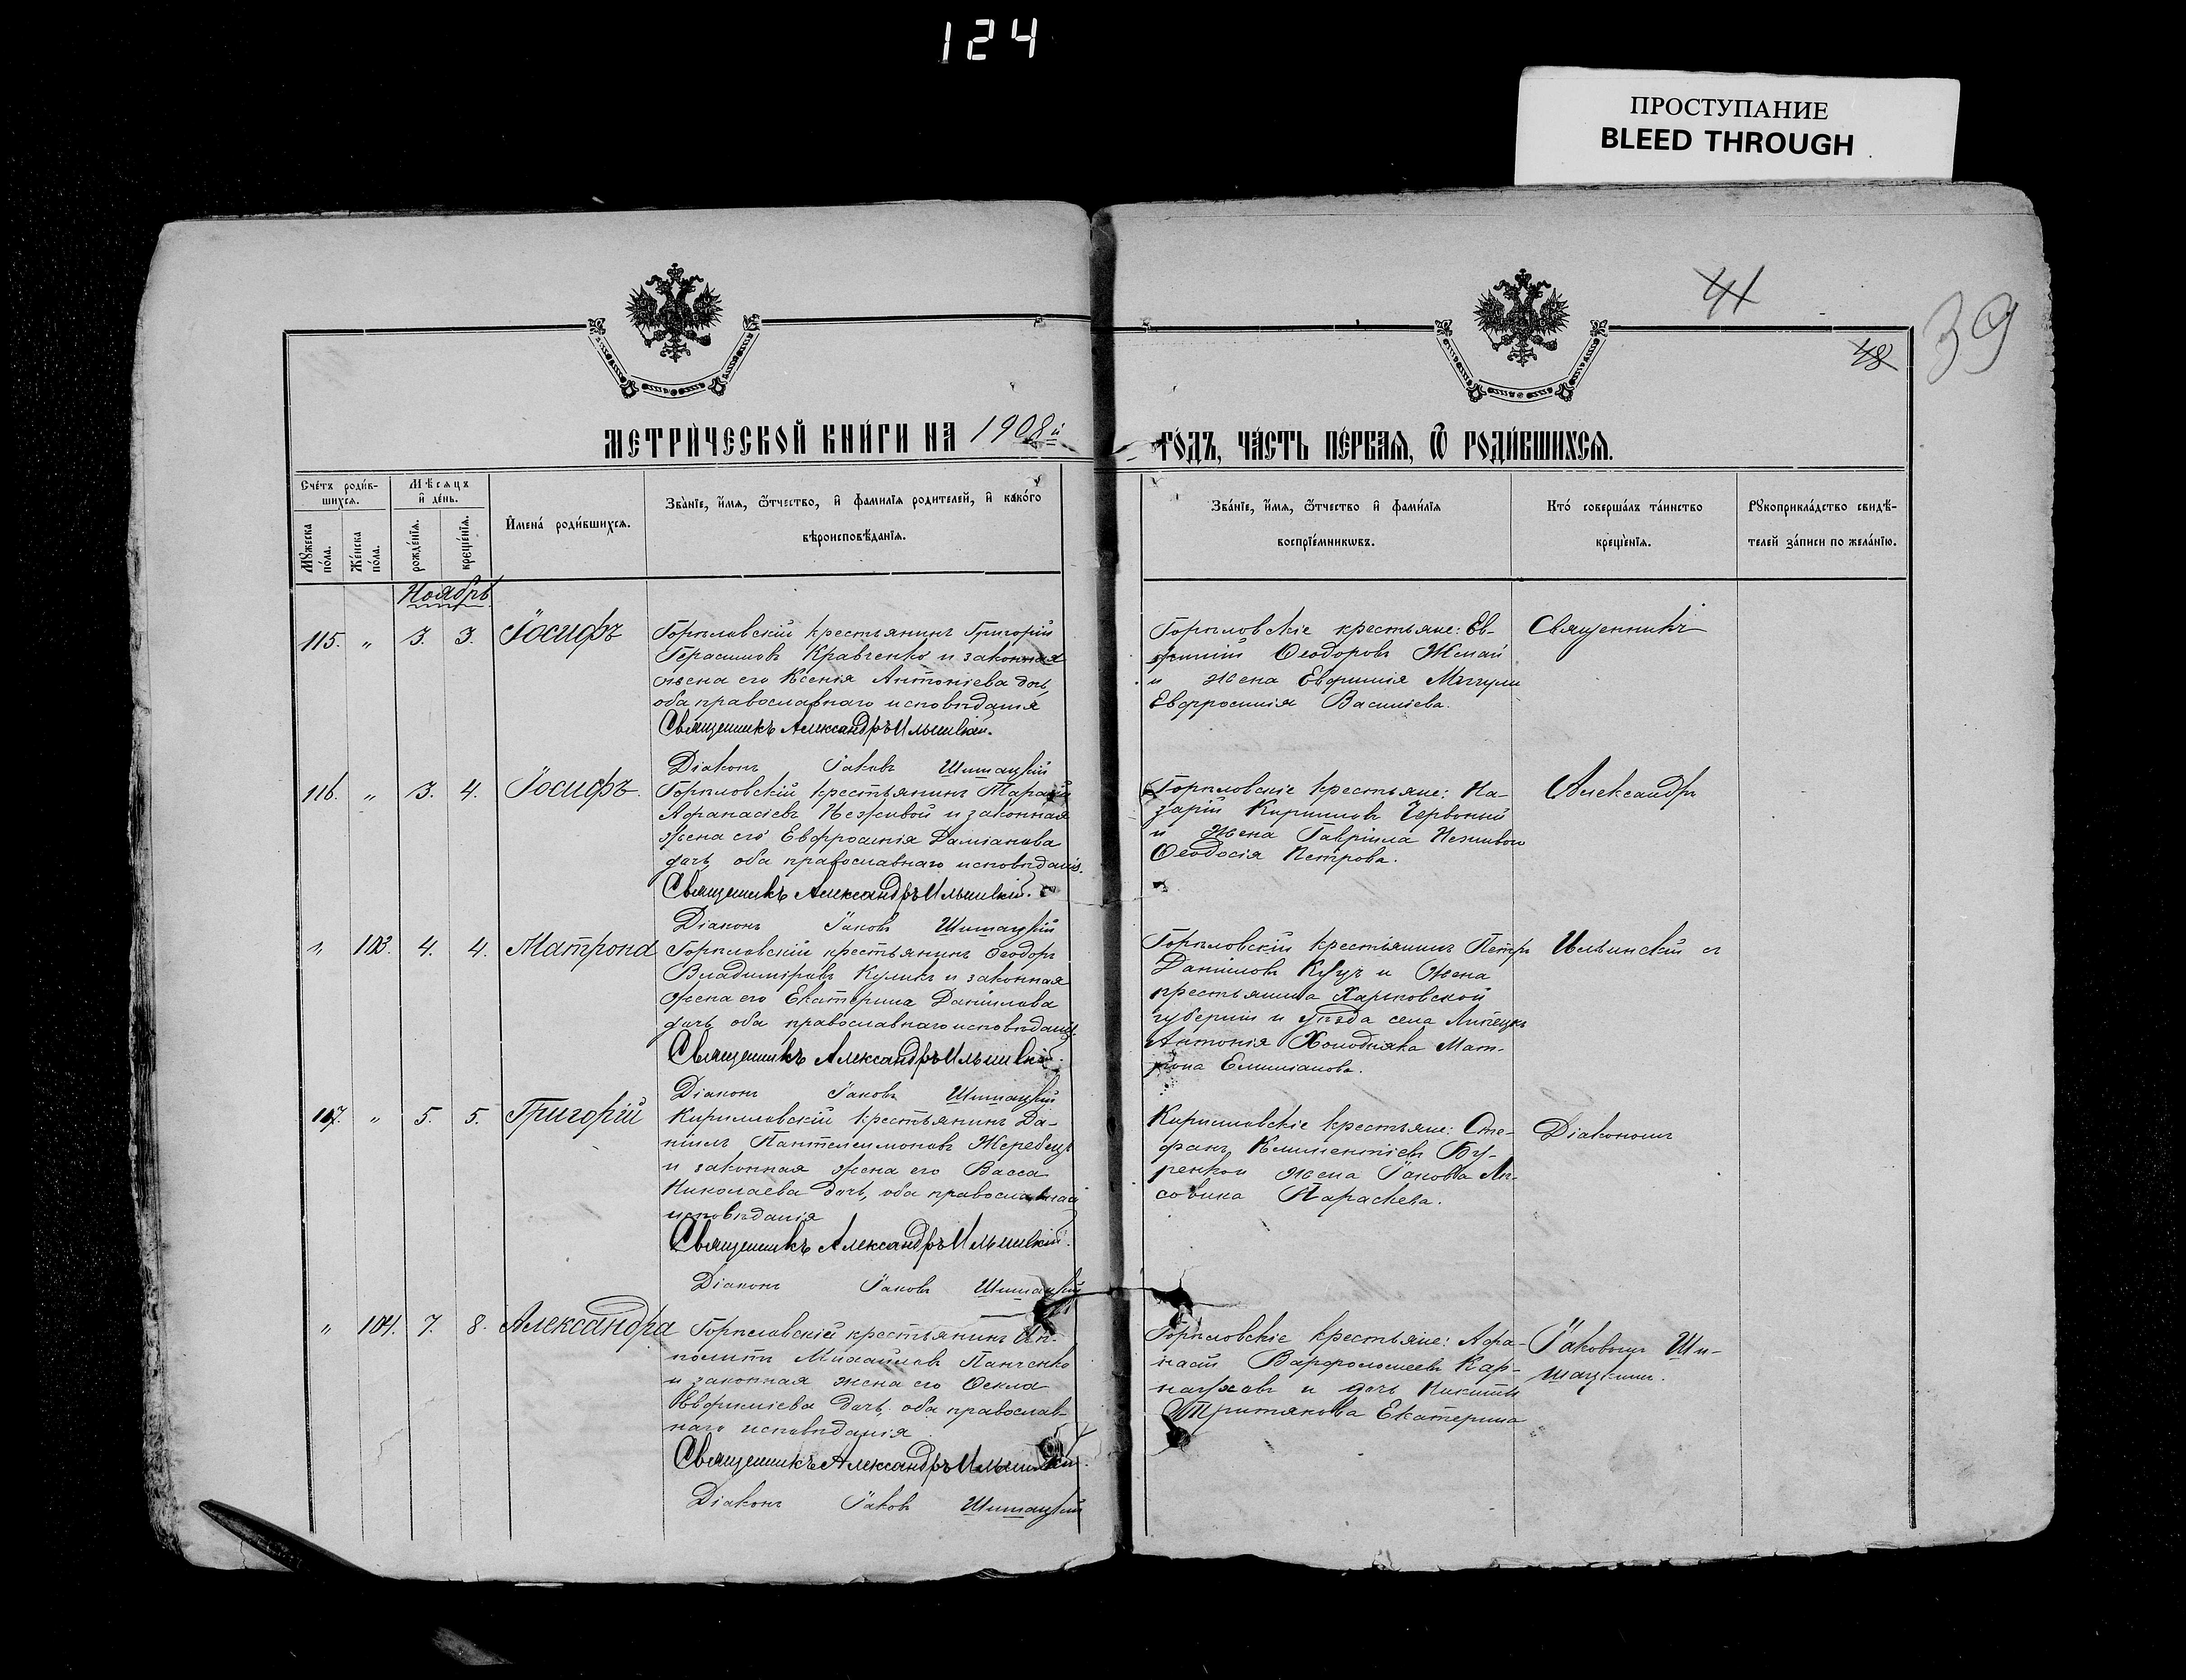 124
ПРОСТУПАНИЕ
BLEED THROUGH
41
39
48
МЕТРИ́ЧЕСКОЙ КНИ́ГИ НА 1908й
ГО́ДЪ, ЧА́СТЬ ПЕ́РВАѦ, Ѿ РОДИ́ВШИХСѦ.
Сче́тъ роди́в-
шихся.
Мѣ́сяцъ
и де́нь.
Мꙋжеска по́ла.
Же́нска по́ла.
рожде́нїѧ.
креще́нїѧ.
Имена́ роди́вшихсѧ.
Зва́нїе, и́мѧ, ѻ́тчество, и фамилїѧ родителей, и како́го
вѣроисповѣ́данїѧ.
Зва́нїе, и́мѧ, ѻ́тчество и фами́лїѧ
воспрїе́мникѡвъ.
Кто́ соверша́лъ та́инство
креще́нїѧ.
Рꙋкоприкла́дство свидѣ́-
телей за́писи по жела́нїю.
Ноябрь
115. „ 3. 3. Іосифъ
Гориловскій крестьянинъ Григорій
Герасимовъ Кравченко и законная
жена его Ксенія Антоніева дочь,
оба православнаго исповѣданія
Священникъ Александръ Ильинскій.
Діаконъ Іаковъ Шишацкій
Горкловскіе крестьяне: Ев-
Ѳеодоровъ
и жена Евфимія
Евфросинія Василіева.
Священникъ
116. „ 3. 4. Іосифъ.
крестьянинъ Тарасій
Афанасіевъ Неживой и законная
жена его Евфросинія Даміанова
дочь, оба православнаго исповѣданія.
Священникъ Александръ Ильинскій.
Діаконъ Іаковъ Шишацкій
крестьяне: На-
зарій Кирилловъ Червоный
и жена Гавріила Неживого
Ѳеодосія Петрова.
Александръ
„ 103. 4. 4. Матрона
крестьянинъ Ѳеодоръ
Владиміровъ Куликъ и законная
жена его Екатерина Даніилова
дочь, оба православнаго исповѣданія
Священникъ Александръ Ильинскій.
Діаконъ Іаковъ Шишацкій
крестьянинъ Петръ
Даніиловъ и жена
крестьянина Харьковской
губерніи и уѣзда села Липецъ
Антонія Холодняка Мат-
рона Емиліанова.
Ильинскій съ
117. „ 5. 5. Григорій
Кирилловскій крестьянинъ Да-
ніилъ Пантелеимоновъ Жеребецъ
и законная жена его Васса
Николаева дочь, оба православнаго
исповѣданія
Священникъ Александръ Ильинскій.
Діаконъ Іаковъ Шишацкій
Кирилловскіе крестьяне: Сте-
фанъ Климентіевъ Бу-
жена Іакова Ли-
совика Параскева.
Діакономъ
„ 104. 7. 8. Александра
крестьянинъ Ип-
политъ Михаиловъ Панченко
и законная жена его Ѳекла
Евфиміева дочь, оба православ-
наго исповѣданія
Священникъ Александръ Ильинскій.
Діаконъ Іаковъ Шишацкій
крестьяне: Афа-
насій Варфоломеевъ Кар-
науховъ и дочь Никиты
Екатерина
Іаковомъ Ши-
шацкимъ.